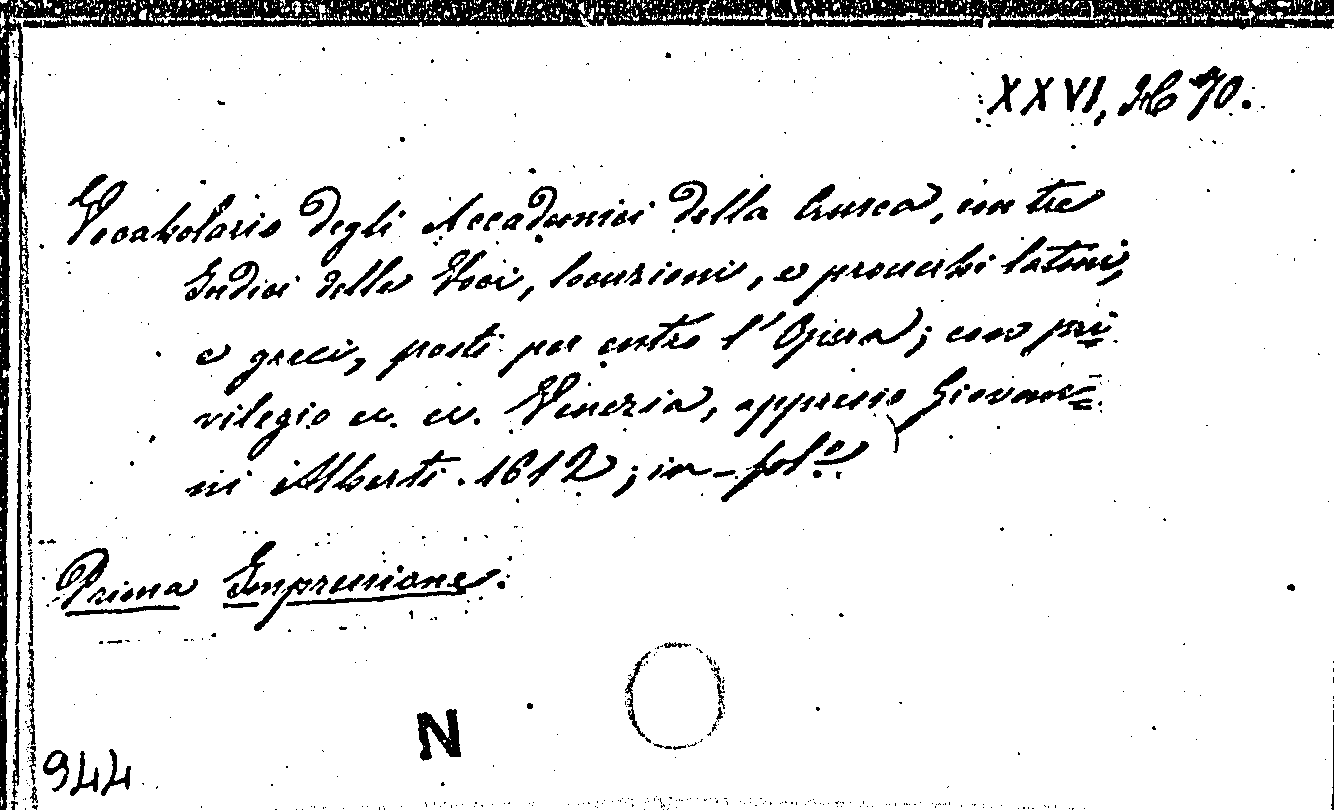 XXVI, 2C 70.
Vocabolario degli Accademici della Crusca, con tre
Indici delle Voci, locuzioni, e proverbi latini,
e greci, posti per entro l'Opera; con pri=
vilegio ec. ec. Venezia, appresso Giovan=
ni Alberti. 1612; in-fol.º
Prima Impressione.
N
944